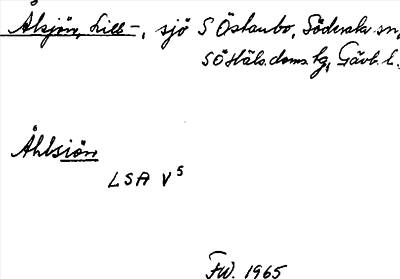 Ålsjön, Lill-, sjö S Östanbo, Söderala sn,
S Östra Häls. doms. tg, Gävl. l.
Åhlsjön
LSA V5
FW. 1965